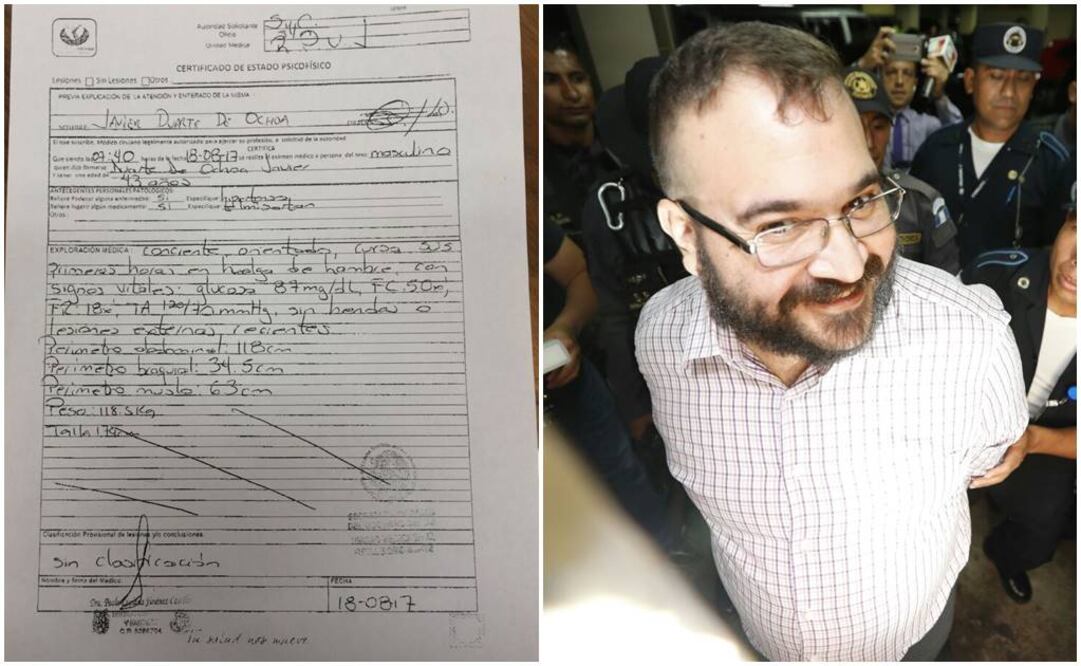 Autoridad Solicitante
Oficio
Unidad Medica
CERTIFICADO DE ESTADO PSICOFÍSICO
Lesiones Sin Lesiones Otros
PREVIA EXPLICACIÓN DE LA ATENCIÓN Y ENTERADO DE LA MISMA
NOMBRE: JAVIER DUARTE DE OCHOA
El que suscribe, Médico cirujano legalmente autorizado para ejercer su profesión, a solicitud de la autoridad
CERTIFICA
Que siendo las 07:40 horas de fecha 18-08-17 se realiza el examen médico a persona del sexo masculino
quien dijo llamarse Duarte De Ochoa Javier
Y tener una edad de 43 años
ANTECEDENTES PERSONALES PATOLÓGICOS
Refiere Padecer alguna enfermedad: Si Especifique
Refiere Ingerir algún medicamento: Si Especifique
Otros:
EXPLORACIÓN MEDICA: conciente orientado, cursa sus
primeras horas en huelga de hambre, con
signos vitales: glucosa 87mg/dL, FC 50x,
FR 18x', TA 120/70mmHg, sin heridas o
lesiones externas recientes
Perímetro abdominal: 118cm
Perímetro braquial: 34.5cm
Perímetro muslo: 63cm
Peso: 118.5Kg
Talla 174cm
Clasificación Provisional de lesiones y/o conclusiones
Sin clasificación
Nombre y firma del Medico: FECHA
18-0817
Tu salud nos mueve